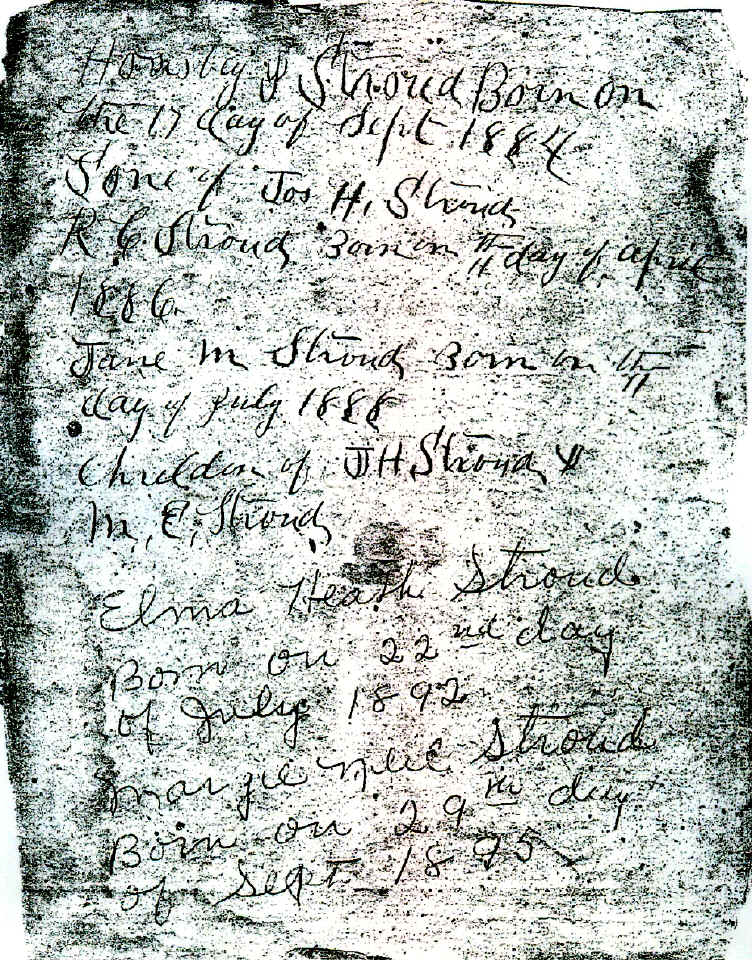 Hornsby J Stroud Born on
the 17 day of Sept 1884
Sone of Jos H. Stroud
R C. Stroud Born on 11th day of april
1886.
Jane M Stroud Born on 11th
day of July 1888
Children of J H Stroud &
M. E. Stroud
Elma Heash Stroud
Born on 22nd day
of July 1892
Margie Nell Stroud
Born on 29th day
of Sept 1895